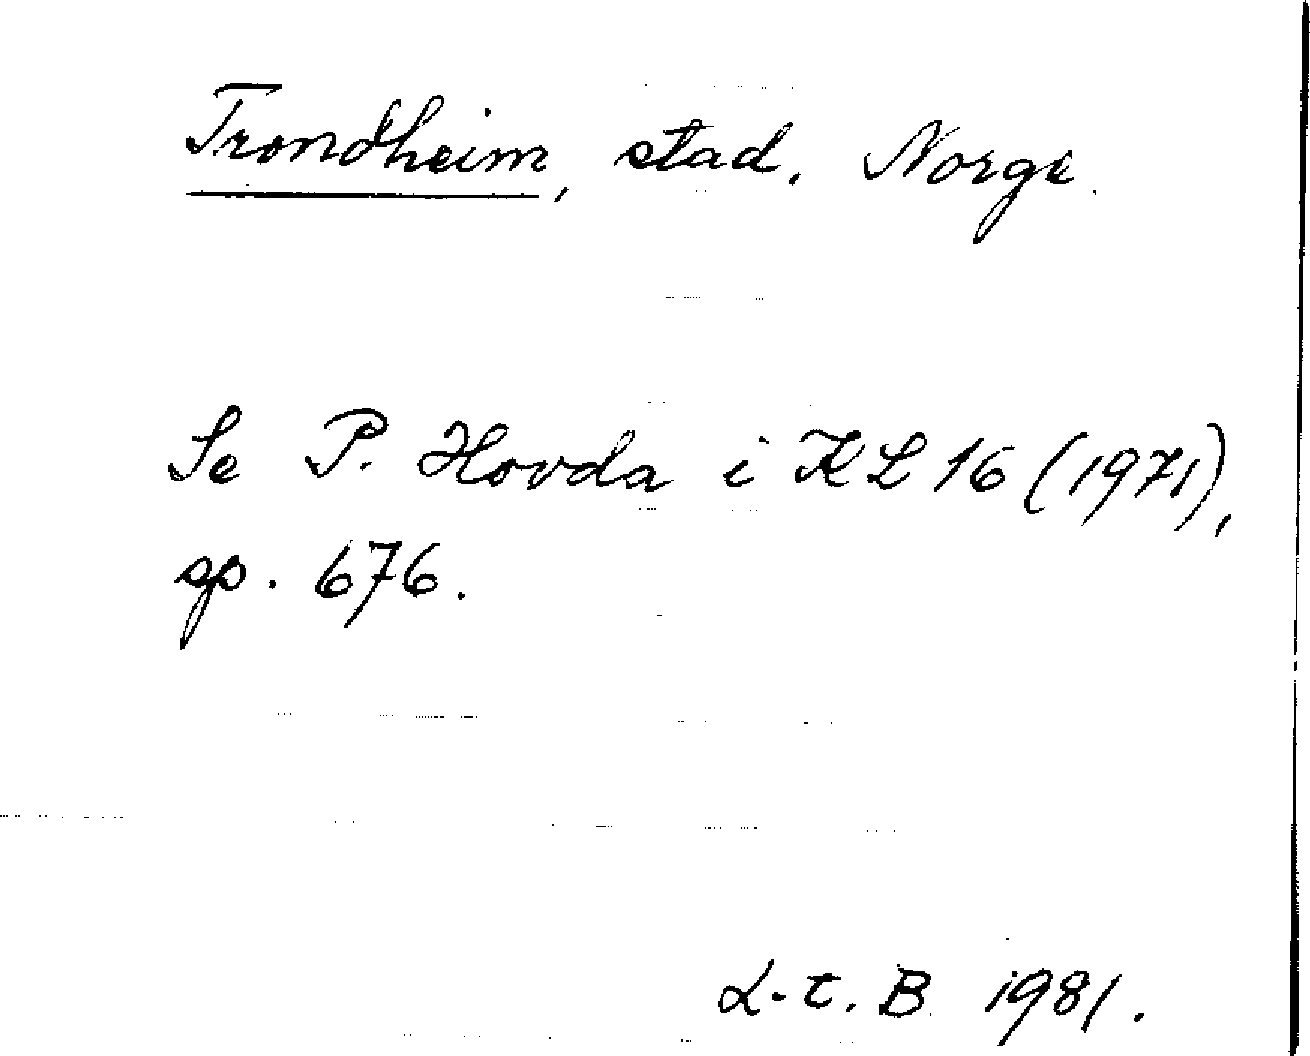 Trondheim, stad, Norge.
Se P. Hovda i KL 16 (1971),
sp. 676.
L-t. B. 1981.